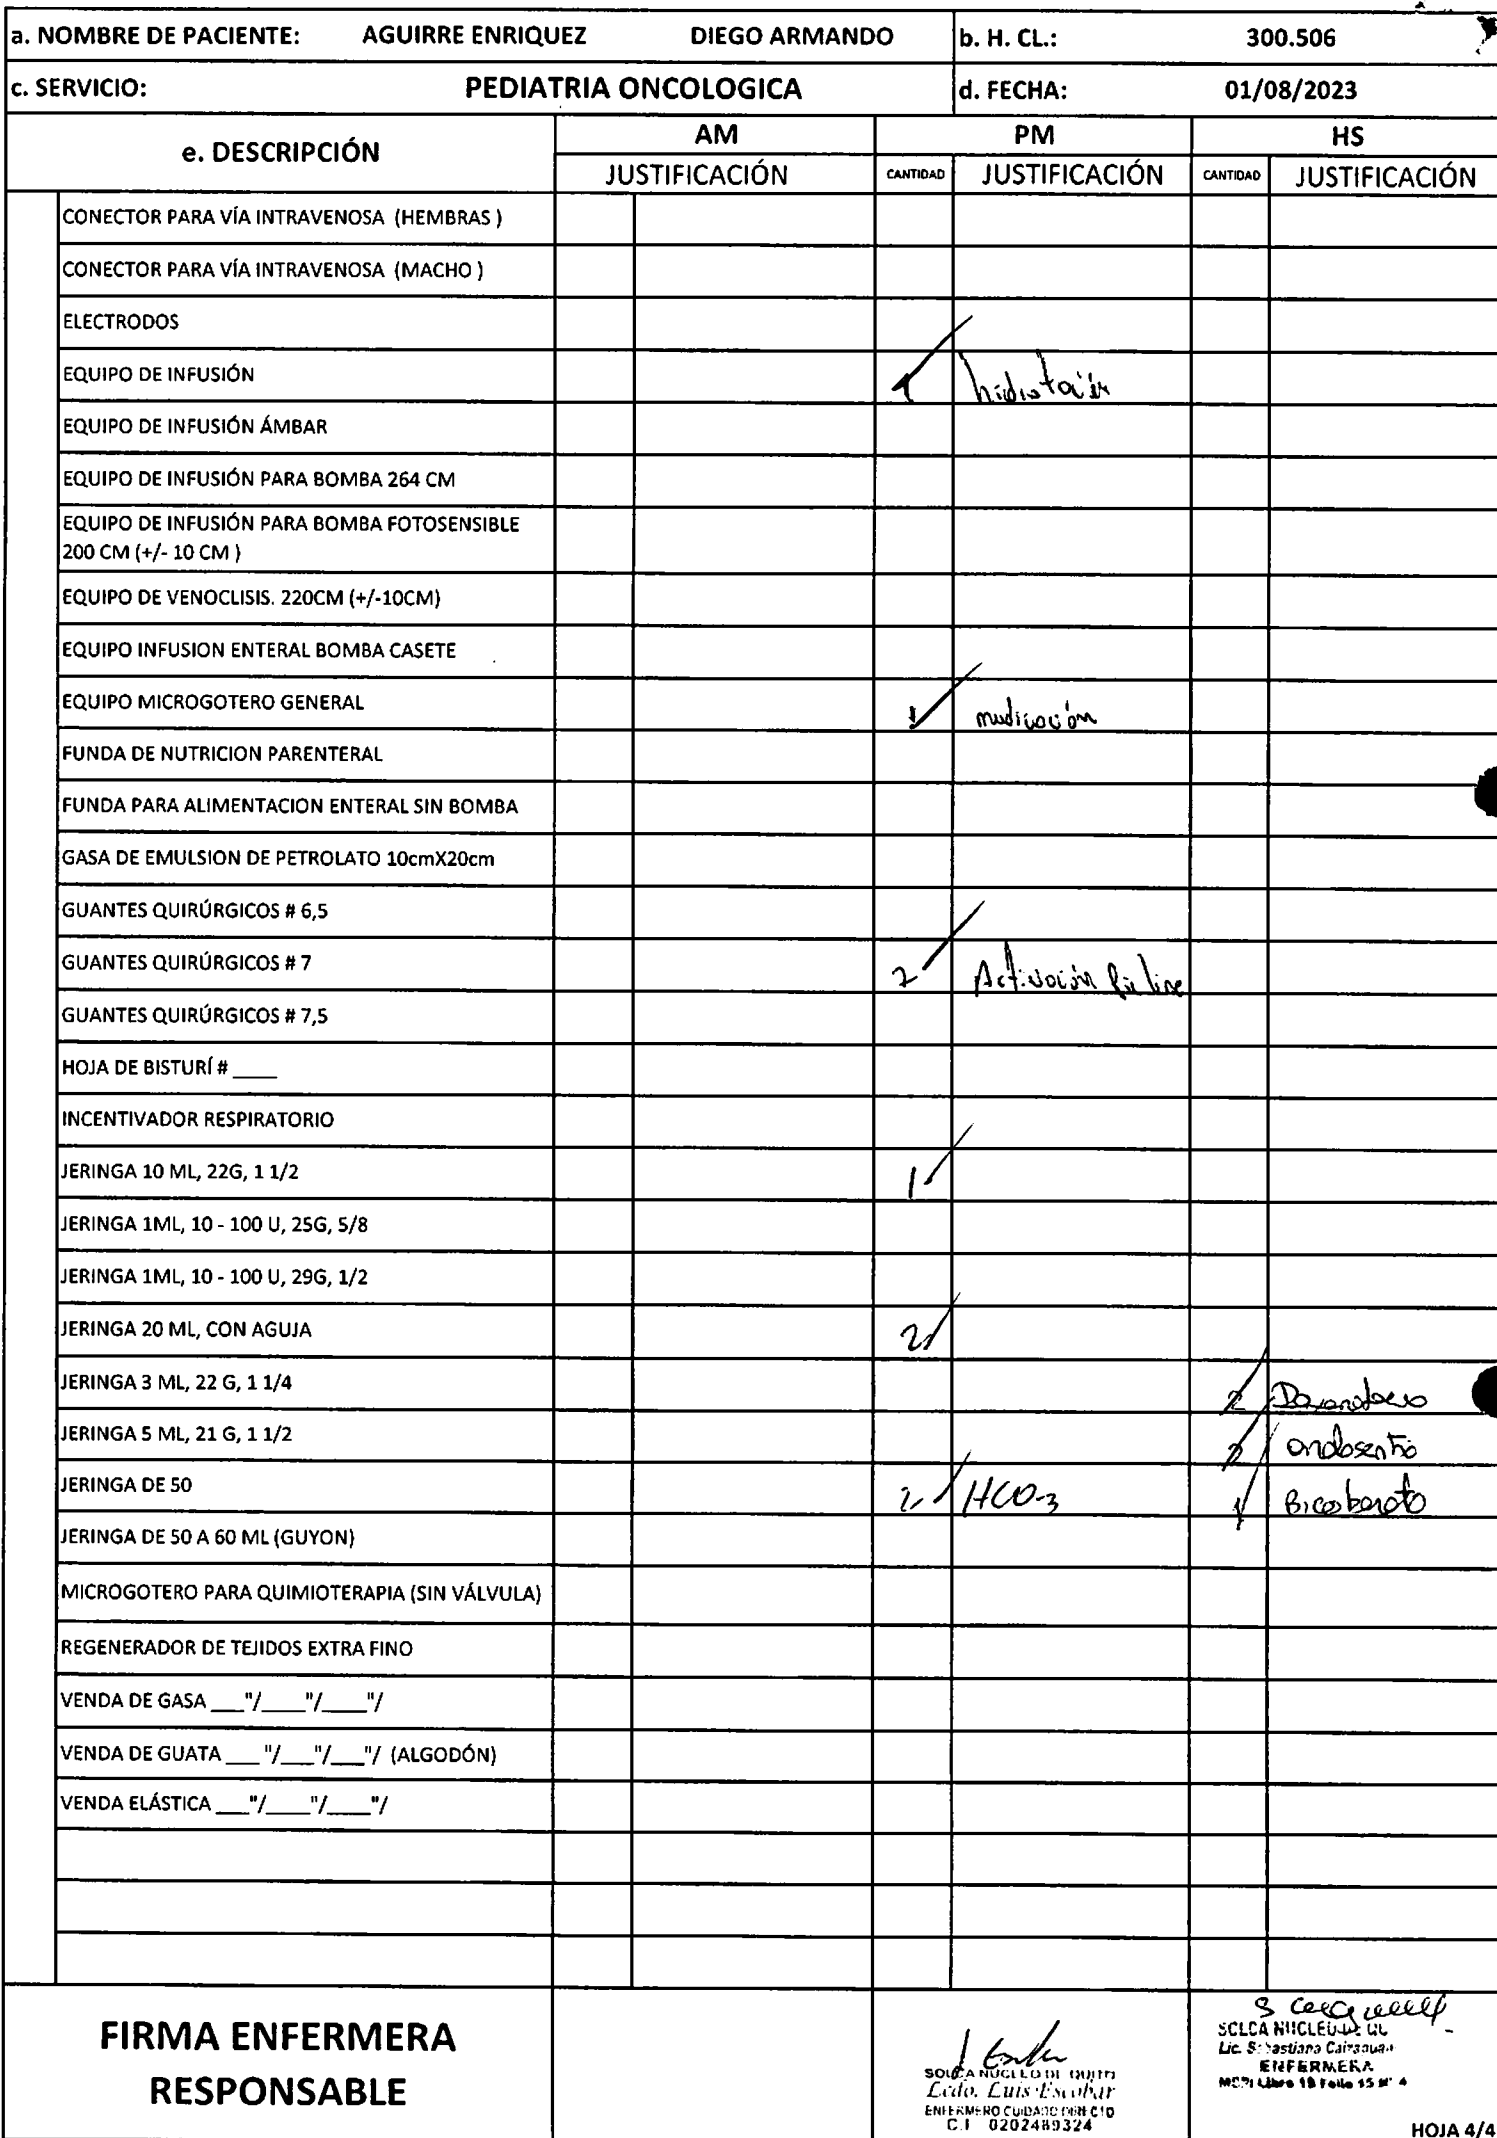 a. NOMBRE DE PACIENTE: AGUIRRE ENRIQUEZ DIEGO ARMANDO b. H. CL.: 300.506
c. SERVICIO: PEDIATRIA ONCOLOGICA d. FECHA: 01/08/2023
e. DESCRIPCIÓN AM PM HS
JUSTIFICACIÓN CANTIDAD JUSTIFICACIÓN CANTIDAD JUSTIFICACIÓN
CONECTOR PARA VÍA INTRAVENOSA (HEMBRAS )
CONECTOR PARA VÍA INTRAVENOSA (MACHO )
ELECTRODOS
EQUIPO DE INFUSIÓN 1 hidratación
EQUIPO DE INFUSIÓN ÁMBAR
EQUIPO DE INFUSIÓN PARA BOMBA 264 CM
EQUIPO DE INFUSIÓN PARA BOMBA FOTOSENSIBLE
200 CM (+/- 10 CM )
EQUIPO DE VENOCLISIS. 220CM (+/-10CM)
EQUIPO INFUSION ENTERAL BOMBA CASETE
EQUIPO MICROGOTERO GENERAL 1 medicación
FUNDA DE NUTRICION PARENTERAL
FUNDA PARA ALIMENTACION ENTERAL SIN BOMBA
GASA DE EMULSION DE PETROLATO 10cmX20cm
GUANTES QUIRÚRGICOS # 6,5
GUANTES QUIRÚRGICOS # 7 2 Activación
GUANTES QUIRÚRGICOS # 7,5
HOJA DE BISTURÍ # ____
INCENTIVADOR RESPIRATORIO
JERINGA 10 ML, 22G, 1 1/2 1
JERINGA 1ML, 10 - 100 U, 25G, 5/8
JERINGA 1ML, 10 - 100 U, 29G, 1/2
JERINGA 20 ML, CON AGUJA 2
JERINGA 3 ML, 22 G, 1 1/4 2
JERINGA 5 ML, 21 G, 1 1/2 2
JERINGA DE 50 2 HCO-3 1 Bicarbonato
JERINGA DE 50 A 60 ML (GUYON)
MICROGOTERO PARA QUIMIOTERAPIA (SIN VÁLVULA)
REGENERADOR DE TEJIDOS EXTRA FINO
VENDA DE GASA ___"/____"/____"/
VENDA DE GUATA ____"/___"/___"/ (ALGODÓN)
VENDA ELÁSTICA ___"/____"/____"/
FIRMA ENFERMERA
RESPONSABLE
SOLCA NUCLEO DE QUITO
Lcdo. Luis Escobar
ENFERMERO CUIDADO DIRECTO
C.I 0202489324
SOLCA NUCLEO DE
Lic.
ENFERMERA
HOJA 4/4